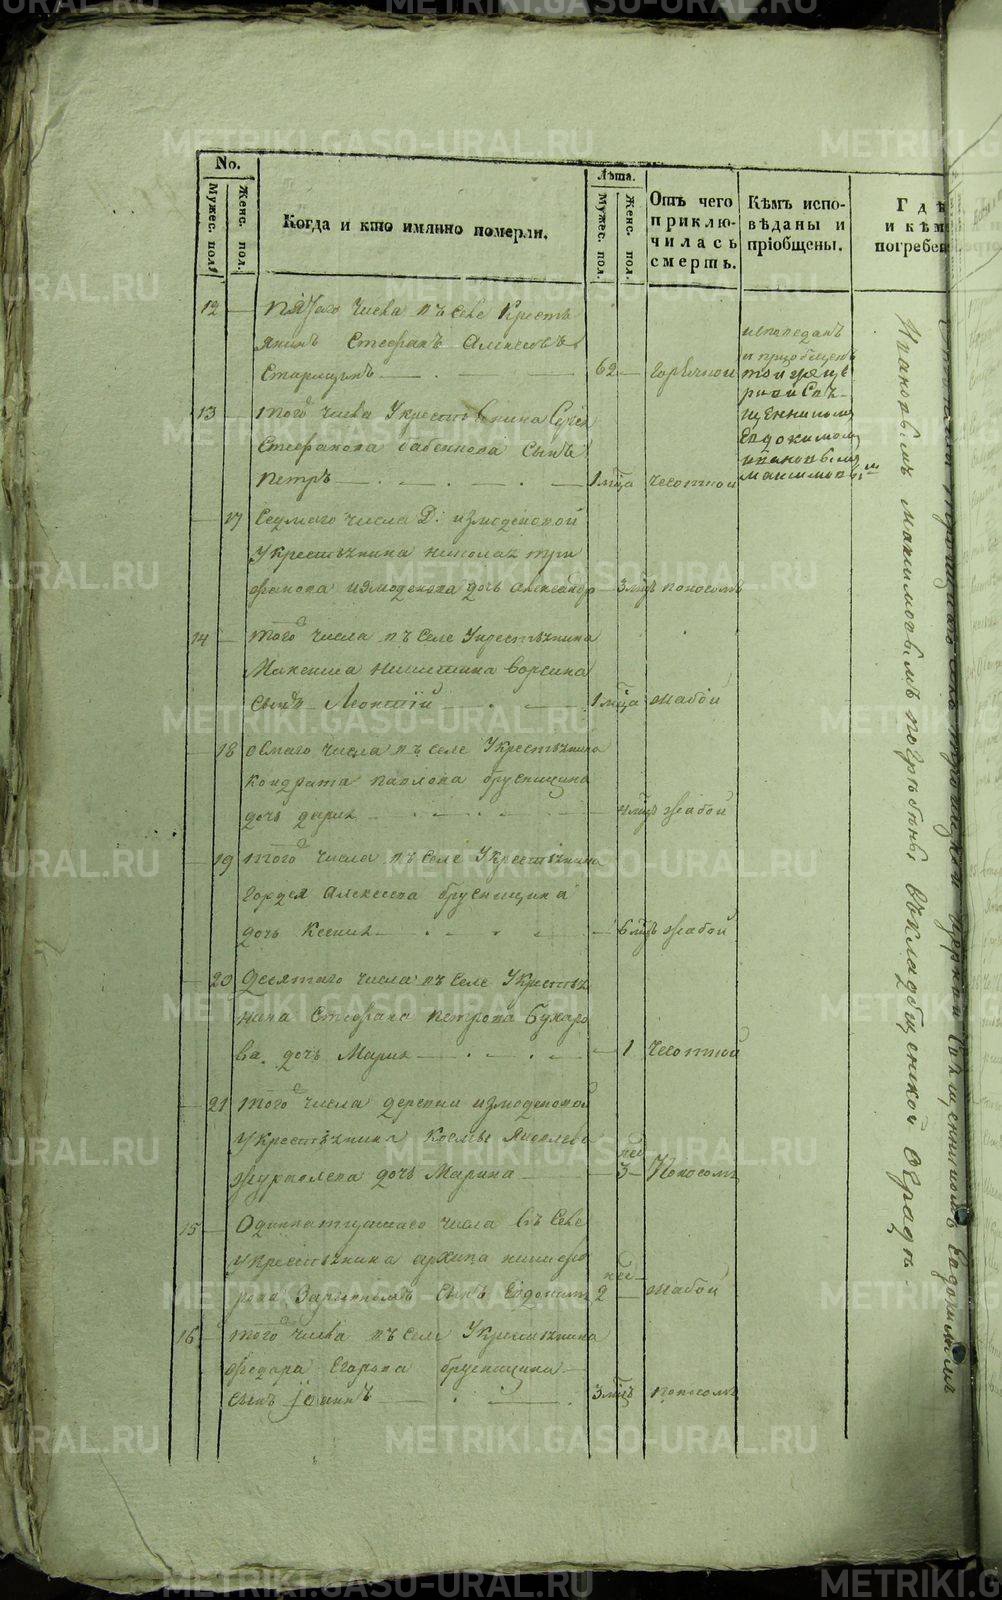 No.
Мужес. пол.
Женс. пол.
Когда и кто имянно померли.
Лѣта.
Мужес. пол.
Женс. пол.
Отъ чего
приклю-
чилась
смерть.
Кѣмъ испо-
вѣданы и
пріобщены.
Гдѣ
и кѣм
погребен
12 Пятаго числа въ селе Кресть
янинъ Стефанъ Алексѣевъ
Старицынъ 62 горячкой
исповеданъ
и приобщенъ
той же це
ркви Свя-
щенникомъ
Евдокимомъ
Ивановымъ
Максимовымъ
13 того числа у крестьянина Сергея
Стефанова сынъ
Петръ 1 мца чесоткой
17 Седмаго числа д: измоденовой
у крестьянина Николая
измоденова дочь Александра 3 мцъ поносомъ
14 того числа въ селе у крестьянина
Максима Никитина
сынъ Леонтій 1 мца жабой
18 осмаго числа въ селе у крестьянина
Кондрата Павлова брусницина
дочь дарья 4 мцъ жабой
19 того числа въ селе у крестьянина
Гордея Алексеева брусницина
дочь Ксения 6 мцъ жабой
20 десятаго числа въ селе у крестья
нина Стефана Петрова Бухаро
ва дочь Мария 1 чесоткой
21 того числа деревни измоденовой
у крестьянина Космы Яковлева
Журавлева дочь Марина 3 не поносомъ
15 Одиннатцатаго числа въ селе
у крестьянина архипа никифо
рова сынъ Евдокимъ 2 не жабой
16 того числа въ селе у крестьянина
федора Егорова брусницина
сынъ Іоаннъ 3 мцъ поносомъ
Ивановымъ Максимовымъ погребены въ кладбищенской оградѣ.
церкви Священникомъ Евдокимомъ
METRIKI.GASO-URAL.RU